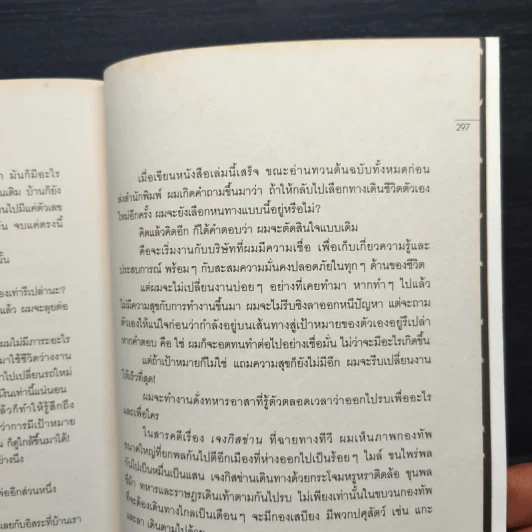 า มันก็มีอะไร
นเดิม บ้านก็ยัง
นไปมีแค่ตัวเลข
น จบแค่ตรงนี้
นั้น
องเท่ารึเปล่านะ?
แล้ว ผมจะลุยต่อ
ผมไม่มีภาระอะไร
มาใช้ชีวิตว่างงาน
าไปเปลี่ยนรถใหม่
งินเท่านี้แน่นอน
ล้วก็ทำให้รู้สึกถึง
ว่าการมีเป้าหมาย
น ก็ดูใกล้ขึ้นมาได้!
อย่างนึง
พ้ออีกส่วนหนึ่ง
เลยกับอิสระที่บ้านเรา
297
เมื่อเขียนหนังสือเล่มนี้เสร็จ ขณะอ่านทวนต้นฉบับทั้งหมดก่อน
ส่งสำนักพิมพ์ ผมเกิดคำถามขึ้นมาว่า ถ้าให้กลับไปเลือกทางเดินชีวิตตัวเอง
ใหม่อีกครั้ง ผมจะยังเลือกหนทางแบบนี้อยู่หรือไม่?
คิดแล้วคิดอีก ก็ได้คำตอบว่า ผมจะตัดสินใจแบบเดิม
คือจะเริ่มงานกับบริษัทที่ผมมีความเชื่อ เพื่อเก็บเกี่ยวความรู้และ
ประสบการณ์ พร้อมๆ กับสะสมความมั่นคงปลอดภัยในทุกๆ ด้านของชีวิต
แต่ผมจะไม่เปลี่ยนงานบ่อยๆ อย่างที่เคยทำมา หากทำๆ ไปแล้ว
ไม่มีความสุขกับการทำงานขึ้นมา ผมจะไม่รีบชิงลาออกหนีปัญหา แต่จะถาม
ตัวเองให้แน่ใจก่อนว่ากำลังอยู่บนเส้นทางสู่เป้าหมายของตัวเองอยู่รึเปล่า
หากคำตอบ คือ ใช่ ผมก็จะอดทนทำต่อไปอย่างเชื่อมั่น ไม่ว่าจะมีอะไรเกิดขึ้น
แต่ถ้าเป้าหมายก็ไม่ใช่ แถมความสุขก็ยังไม่มีอีก ผมจะรีบเปลี่ยนงาน
ให้เร็วที่สุด!
ผมจะทำงานดั่งทหารอาสาที่รู้ตัวตลอดเวลาว่าออกไปรบเพื่ออะไร
และเพื่อใคร
ในสารคดีเรื่อง เจงกิสข่าน ที่ฉายทางทีวี ผมเห็นภาพกองทัพ
ขนาดใหญ่ที่ยกพลกันไปตีอีกเมืองที่ห่างออกไปเป็นร้อยๆ ไมล์ ขนไพร่พล
กันไปเป็นหมื่นเป็นแสน เจงกิสข่านเดินทางด้วยกระโจมหรูหราติดล้อ ขุนพล
ขี่ม้า ทหารและราษฎรเดินเท้าตามกันไปรบ ไม่เพียงเท่านั้นในขบวนกองทัพ
ที่จะต้องเดินทางไกลเป็นเดือนๆ จะมีกองเสบียง มีพวกปศุสัตว์ เช่น แกะ
และลา เดินตามไปด้วย